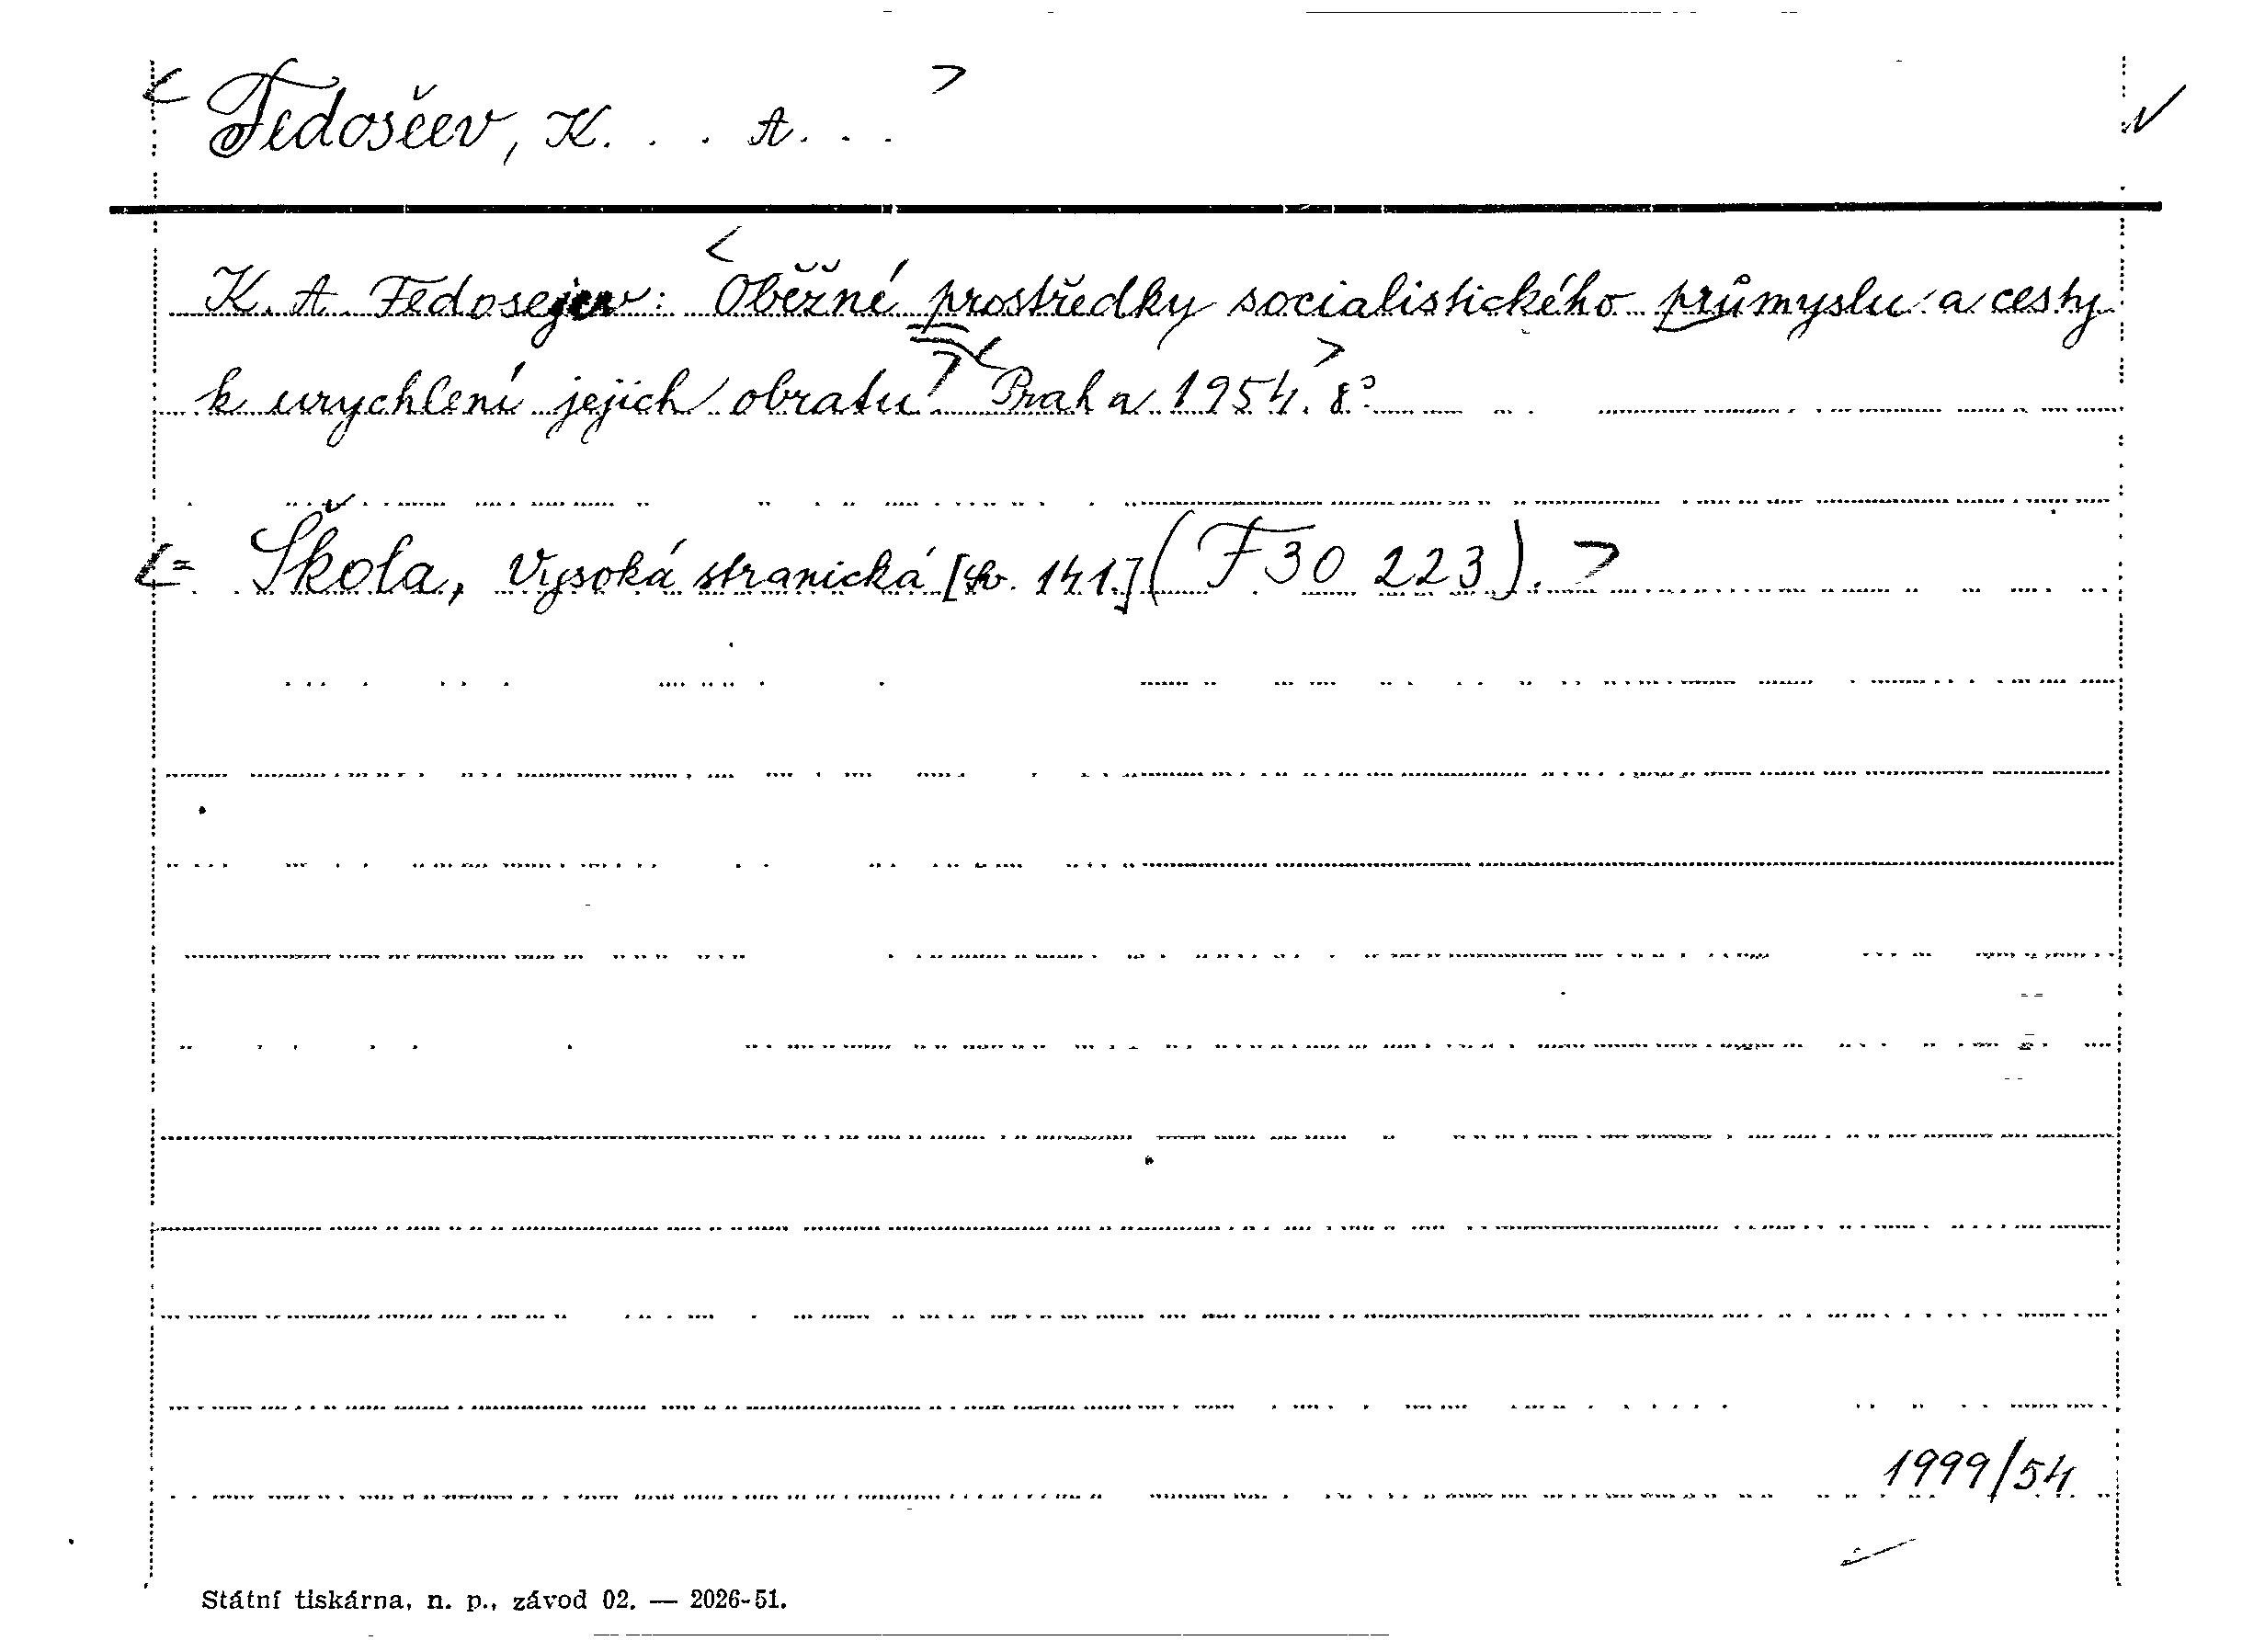 < Fedošeev, K. . . A. . . >
K. A. Fedosejev: < Oběžné prostředky socialistického průmyslu a cesty
k urychlení jejich obratu. > < Praha 1954. > 8°
<= Škola, Vysoká stranická [sv. 141.] (F 30 223). >
1999/54
Státní tiskárna, n. p., závod 02. — 2026-51.